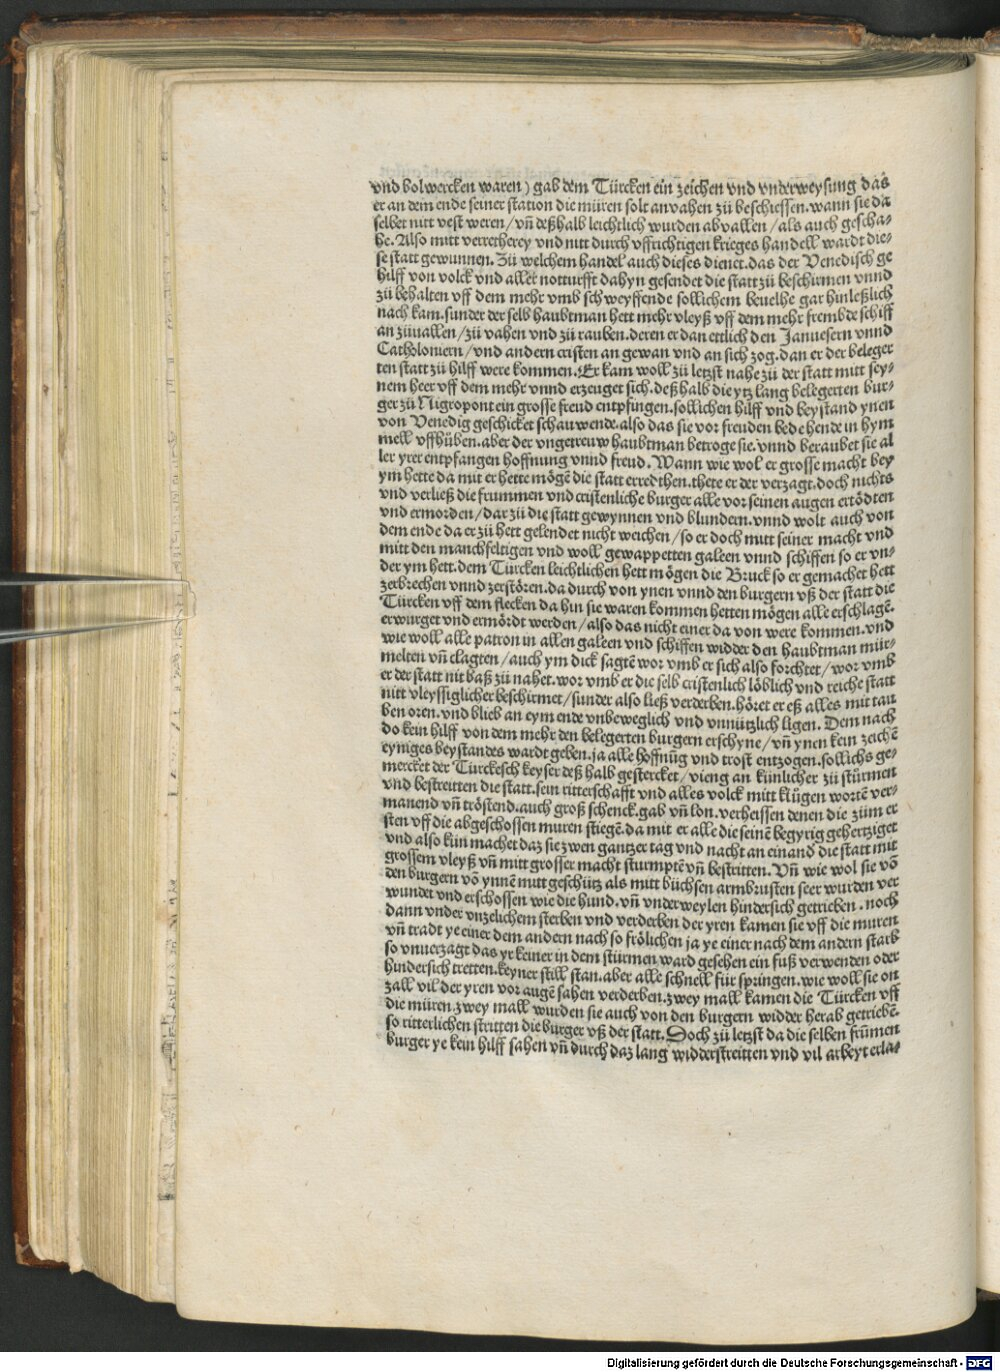 vnd bolwercken waren) gab dem Türcken ein zeichen vnd vnderweysung das
er an dem ende seiner station die müren solt anvahen zü beschiessen. wann sie da
selbet nitt vest weren / vñ deßhalb leichtlich wurden abvallen / als auch gescha-
he. Also mitt verretherey vnd nitt durch vffrichtigen krieges handell wardt die-
se statt gewunnen. Zü welchem handel auch dieses dienet. das der Venedisch ge
hilff von volck vnd aller notturfft dahyn gesendet die statt zü beschirmen vnnd
zü behalten vff dem mehr vmb schweyffende sollichem beuelhe gar hinleßlich
nach kam. sunder der selb haubtman hett mehr vleyß vff dem mehr frembde schiff
an züuallen / zü vahen vnd zü rauben. deren er dan ettlich den Januesern vnnd
Catholoniern / vnd andern cristen an gewan vnd an sich zog. dan er der beleger
ten statt zü hilff were kommen. Er kam woll zü letzst nahe zü der statt mitt sey-
nem heer vff dem mehr vnnd erzeuget sich. deßhalb die ytz lang belegerten bur-
ger zü Nigropont ein grosse freud entpfingen. sollichen hilff vnd beystand ynen
von Venedig geschicket schauwende. also das sie vor freuden bede hende in hym
mell vffhüben. aber der vngetreuw haubtman betroge sie. vnnd beraubet sie al
ler yrer entpfangen hoffnung vnnd freud. Wann wie wol er grosse macht bey
ym hette da mit er hette mögē die statt erredthen. thete er der verzagt. doch nichts
vnd verließ die frummen vnd cristenliche burger alle vor seinen augen ertödten
vnd ermorden / dar zü die statt gewynnen vnd blundern. vnnd wolt auch von
dem ende da er zü hett gelendet nicht weichen / so er doch mitt seiner macht vnd
mitt den manchfeltigen vnd woll gewappetten galeen vnnd schiffen so er vn-
der ym hett. dem Türcken leichtlichen hett mögen die Bruck so er gemachet hett
zerbrechen vnnd zerstören. da durch von ynen vnnd den burgern vß der statt die
Türcken vff dem flecken da hin sie waren kommen hetten mögen alle erschlagē.
erwurget vnd ermördt werden / also das nicht einer da von were kommen. vnd
wie woll alle patron in allen galeen vnd schiffen widder den haubtman mür-
melten vñ clagten / auch ym dick sagtē wor vmb er sich also forchtet / wor vmb
er der statt nit baß zü nahet. wor vmb er die selb cristenlich löblich vnd reiche statt
nitt vleyssiglicher beschirmet / sunder also ließ verderben. höret er eß alles mit tau
ben oren. vnd blieb an eym ende vnbeweglich vnd vnnützlich ligen. Dem nach
do kein hilff von dem mehr den belegerten burgern erschyne / vñ ynen kein zeichē
eyniges beystandes wardt geben. ja alle hoffnūg vnd trost entzogen. sollichs ge-
mercket der Türckesch keyser deß halb gestercket / vieng an künlicher zü stürmen
vnd bestreitten die statt. sein ritterschafft vnd alles volck mitt klügen wortē ver-
manend vñ tröstend. auch groß schenck. gab vñ lon. verheissen denen die züm er
sten vff die abgeschossen muren stiegē. da mit er alle die seinē begyrig gehertziget
vnd also kün machet daz sie zwen gantzer tag vnd nacht an einand̄ die statt mit
grossem vleyß vñ mitt grosser macht sturmptē vñ bestritten. Vñ wie wol sie vō
den burgern vō ynnē mitt geschütz als mitt büchsen armbrusten seer wurden ver
wundet vnd erschossen wie die hund. vñ vnderweylen hindersich getrieben. noch
dann vnder vnzelichem sterben vnd verderben der yren kamen sie vff die muren
vñ tradt ye einer dem andern nach so frölichen ja ye einer nach dem andern starb
so vnuerzagt das yr keiner in dem stürmen ward gesehen ein fuß verwenden oder
hindersich tretten. keyner still stan. aber alle schnell für springen. wie woll sie on
zall vil der yren vor augē sahen verderben. zwey mall kamen die Türcken vff
die müren. zwey mall wurden sie auch von den burgern widder herab getriebē.
so ritterlichen stritten die burger vß der statt. Doch zü letzst da die selben frūmen
burger ye kein hilff sahen vñ durch daz lang widderstreitten vnd vil arbeyt erla-
Digitalisierung gefördert durch die Deutsche Forschungsgemeinschaft - DFG